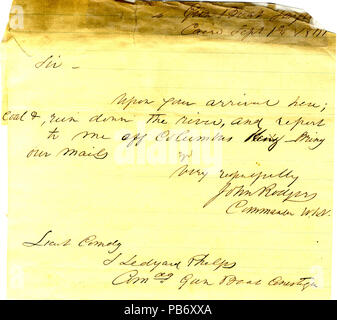 Gun Boat
Cairo Sept 1861
Sir -
Upon your arrival here;
Coal &, run down the river, and report
to me off Columbus Bring
our mails
very respectfully
John Rodgers
Commander USN.
Lieut Comdg
S Ledyard Phelps
Comdg Gun Boat Conestoga
alamy
Image ID: PB6XXA
www.alamy.com